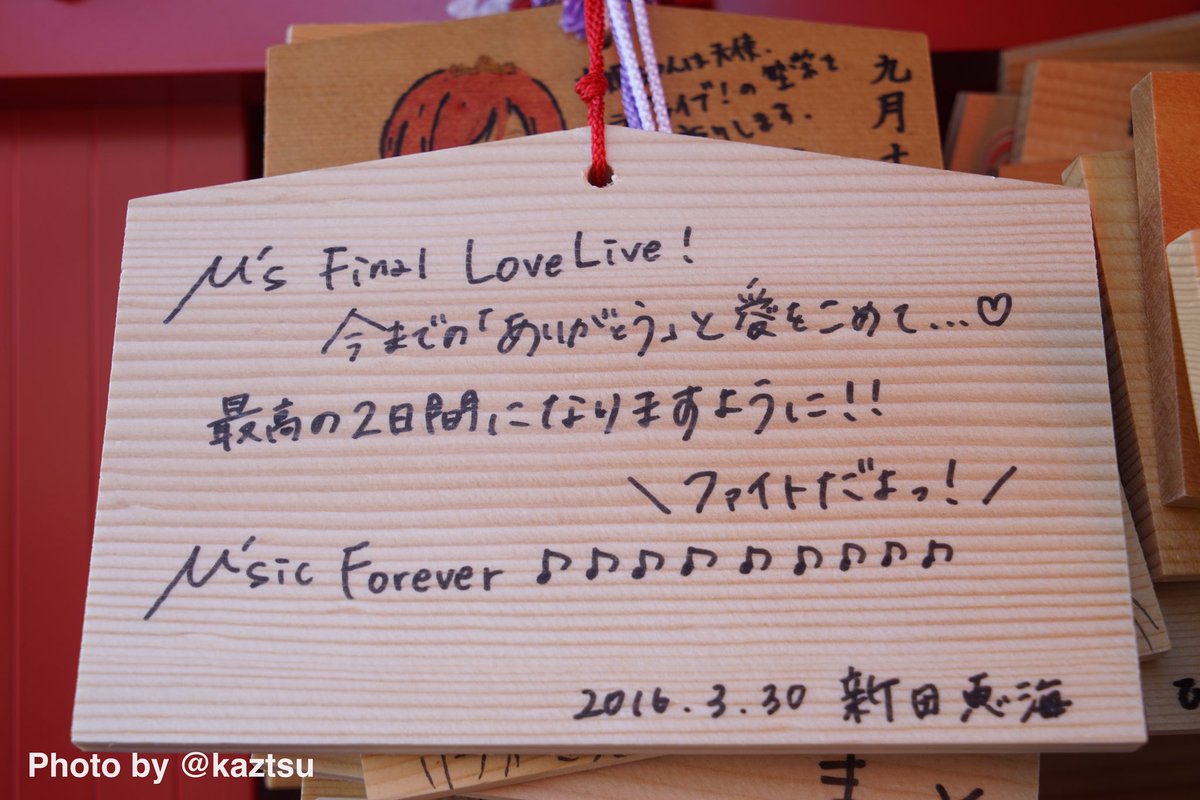 んは天使.
イブ!の繁栄を
します.
九月十
μ's Final LoveLive!
今までの「ありがとう」と愛をこめて...♡
最高の2日間になりますように!!
\ファイトだよっ!/
μ'sic Forever ♪♪♪♪♪♪♪♪♪
2016.3.30 新田恵海
Photo by @kaztsu